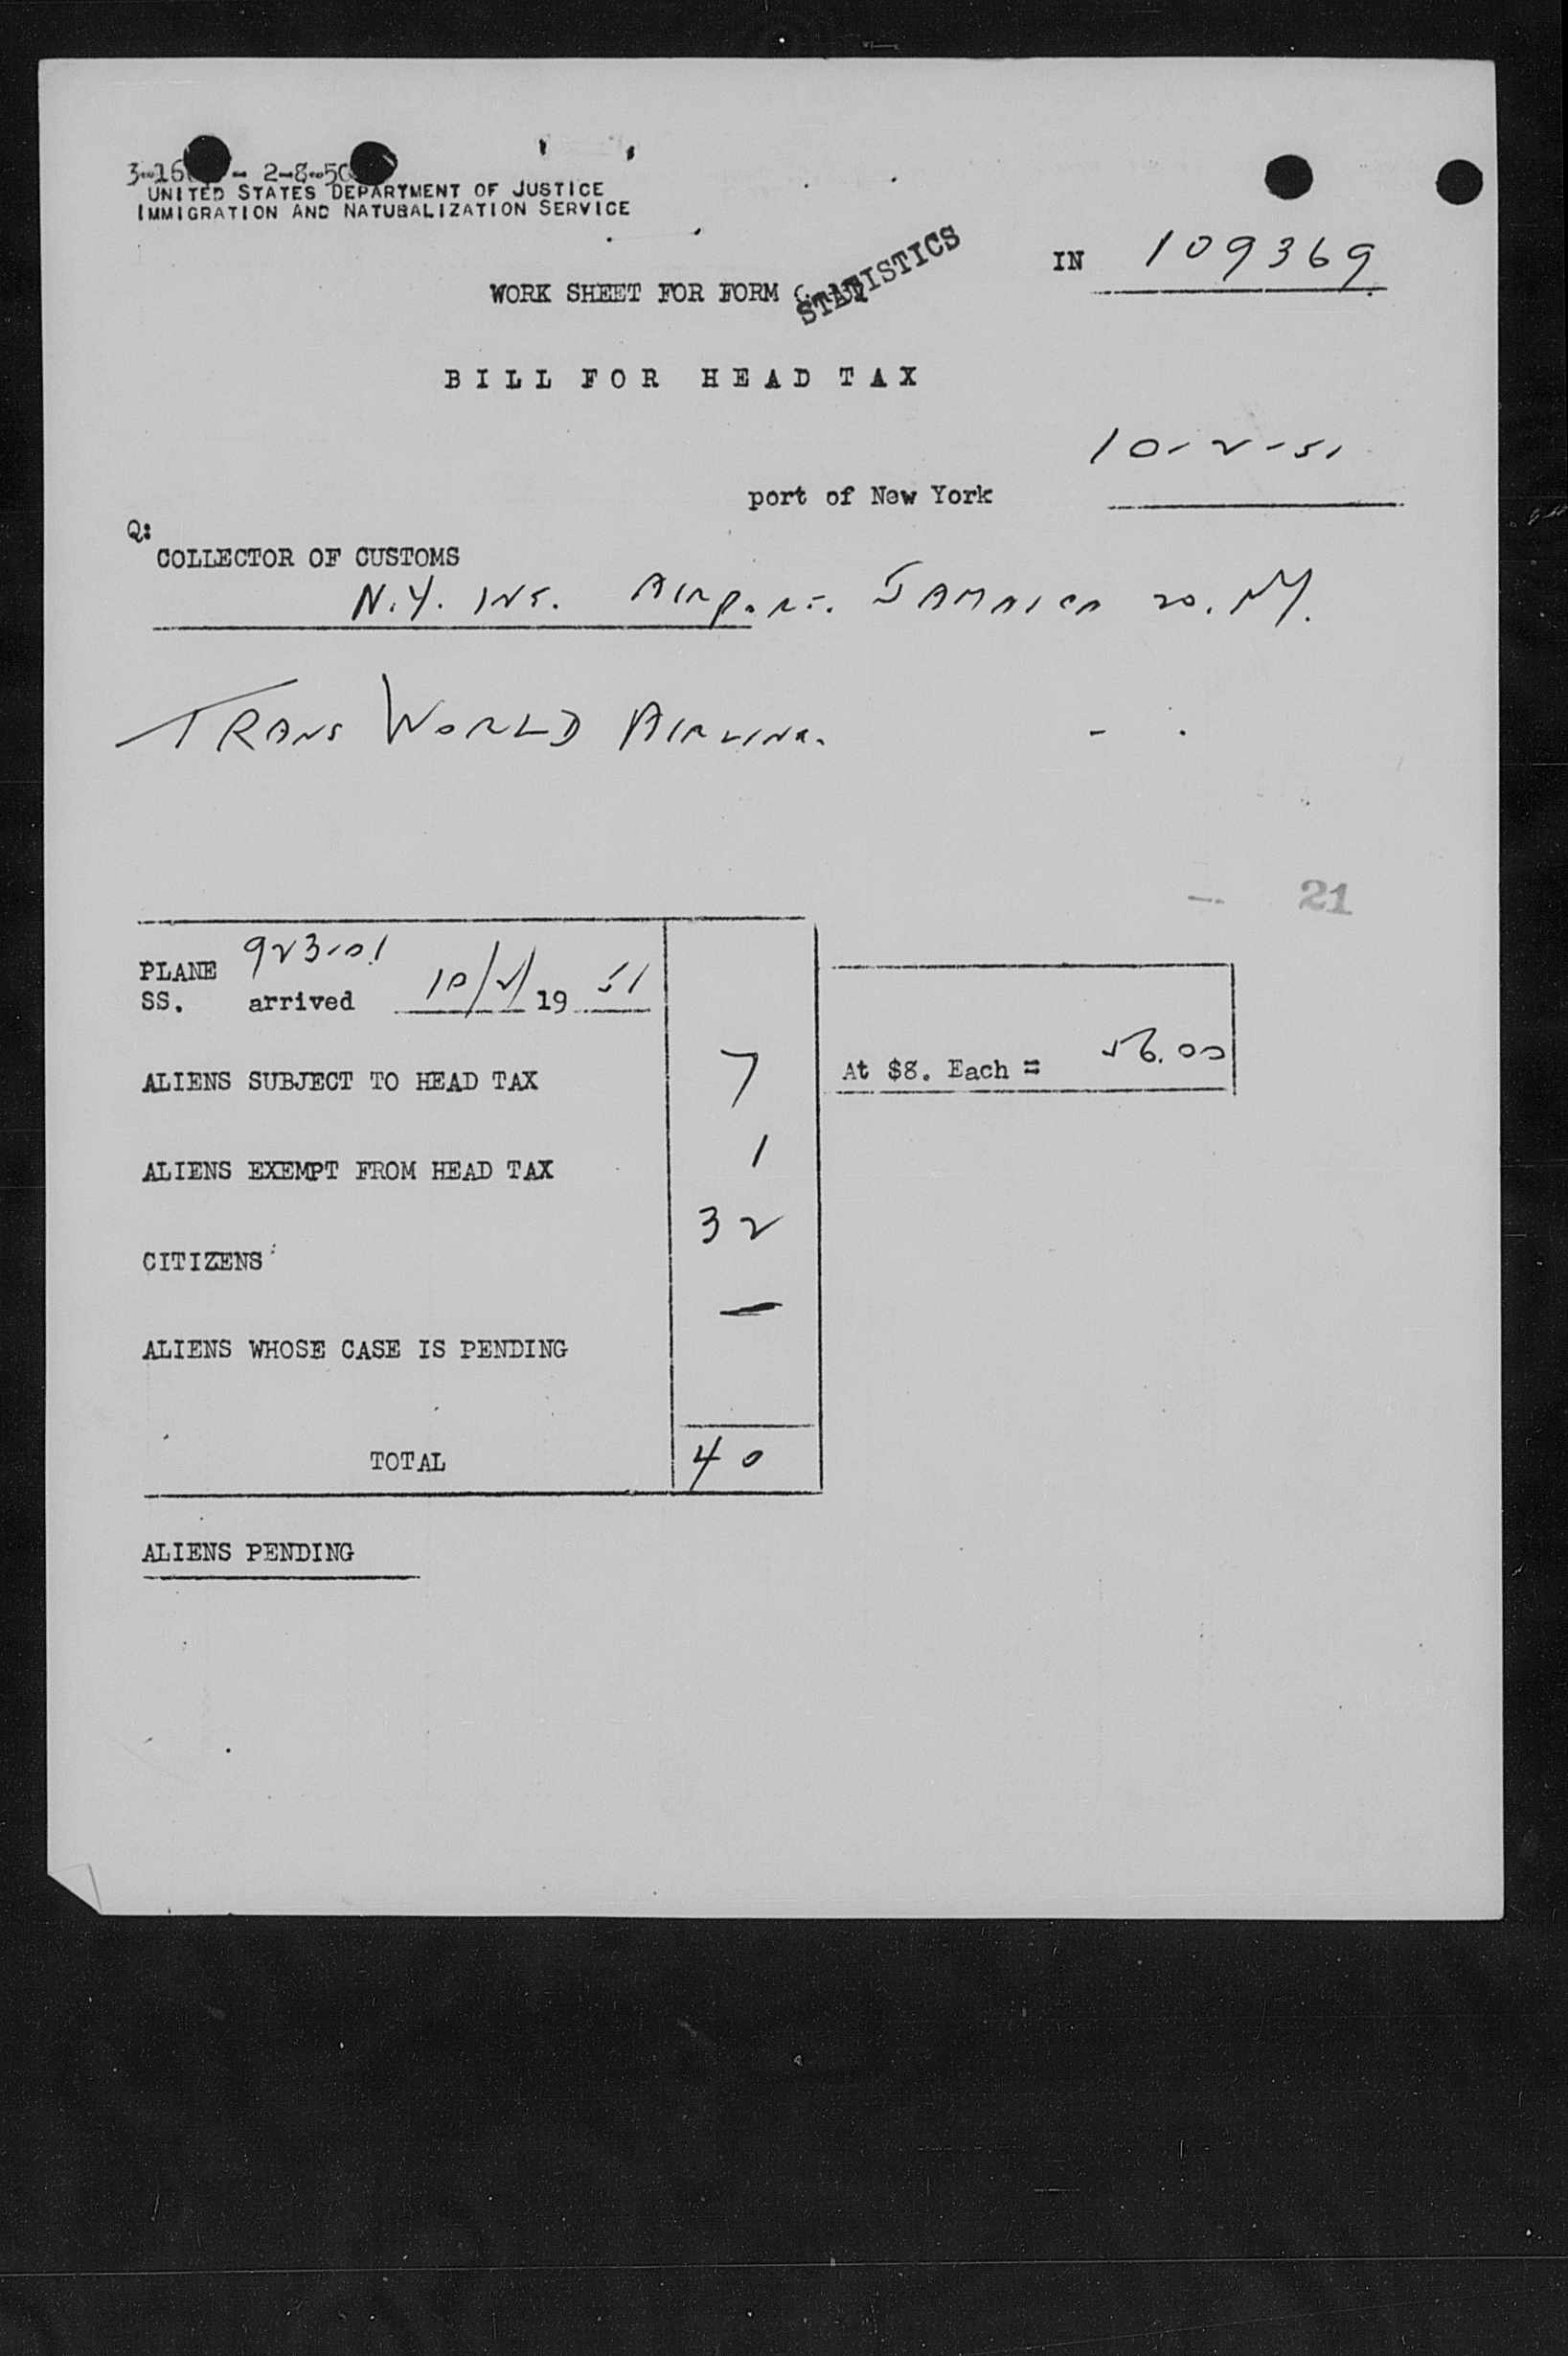 3-16 - 2-8-50
UNITED STATES DEPARTMENT OF JUSTICE
IMMIGRATION AND NATURALIZATION SERVICE
IN 109369
WORK SHEET FOR FORM
STATISTICS
BILL FOR HEAD TAX
10-2-51
port of New York
Q:
COLLECTOR OF CUSTOMS
N.Y. INT. AIRPORT. JAMAICA 20. NY.
TRANS WORLD AIRLINE.
21
PLANE 923-01
SS. arrived 10/2/ 19 51
ALIENS SUBJECT TO HEAD TAX 7 At $8. Each = 56.00
ALIENS EXEMPT FROM HEAD TAX 1
CITIZENS 32
ALIENS WHOSE CASE IS PENDING —
TOTAL 40
ALIENS PENDING